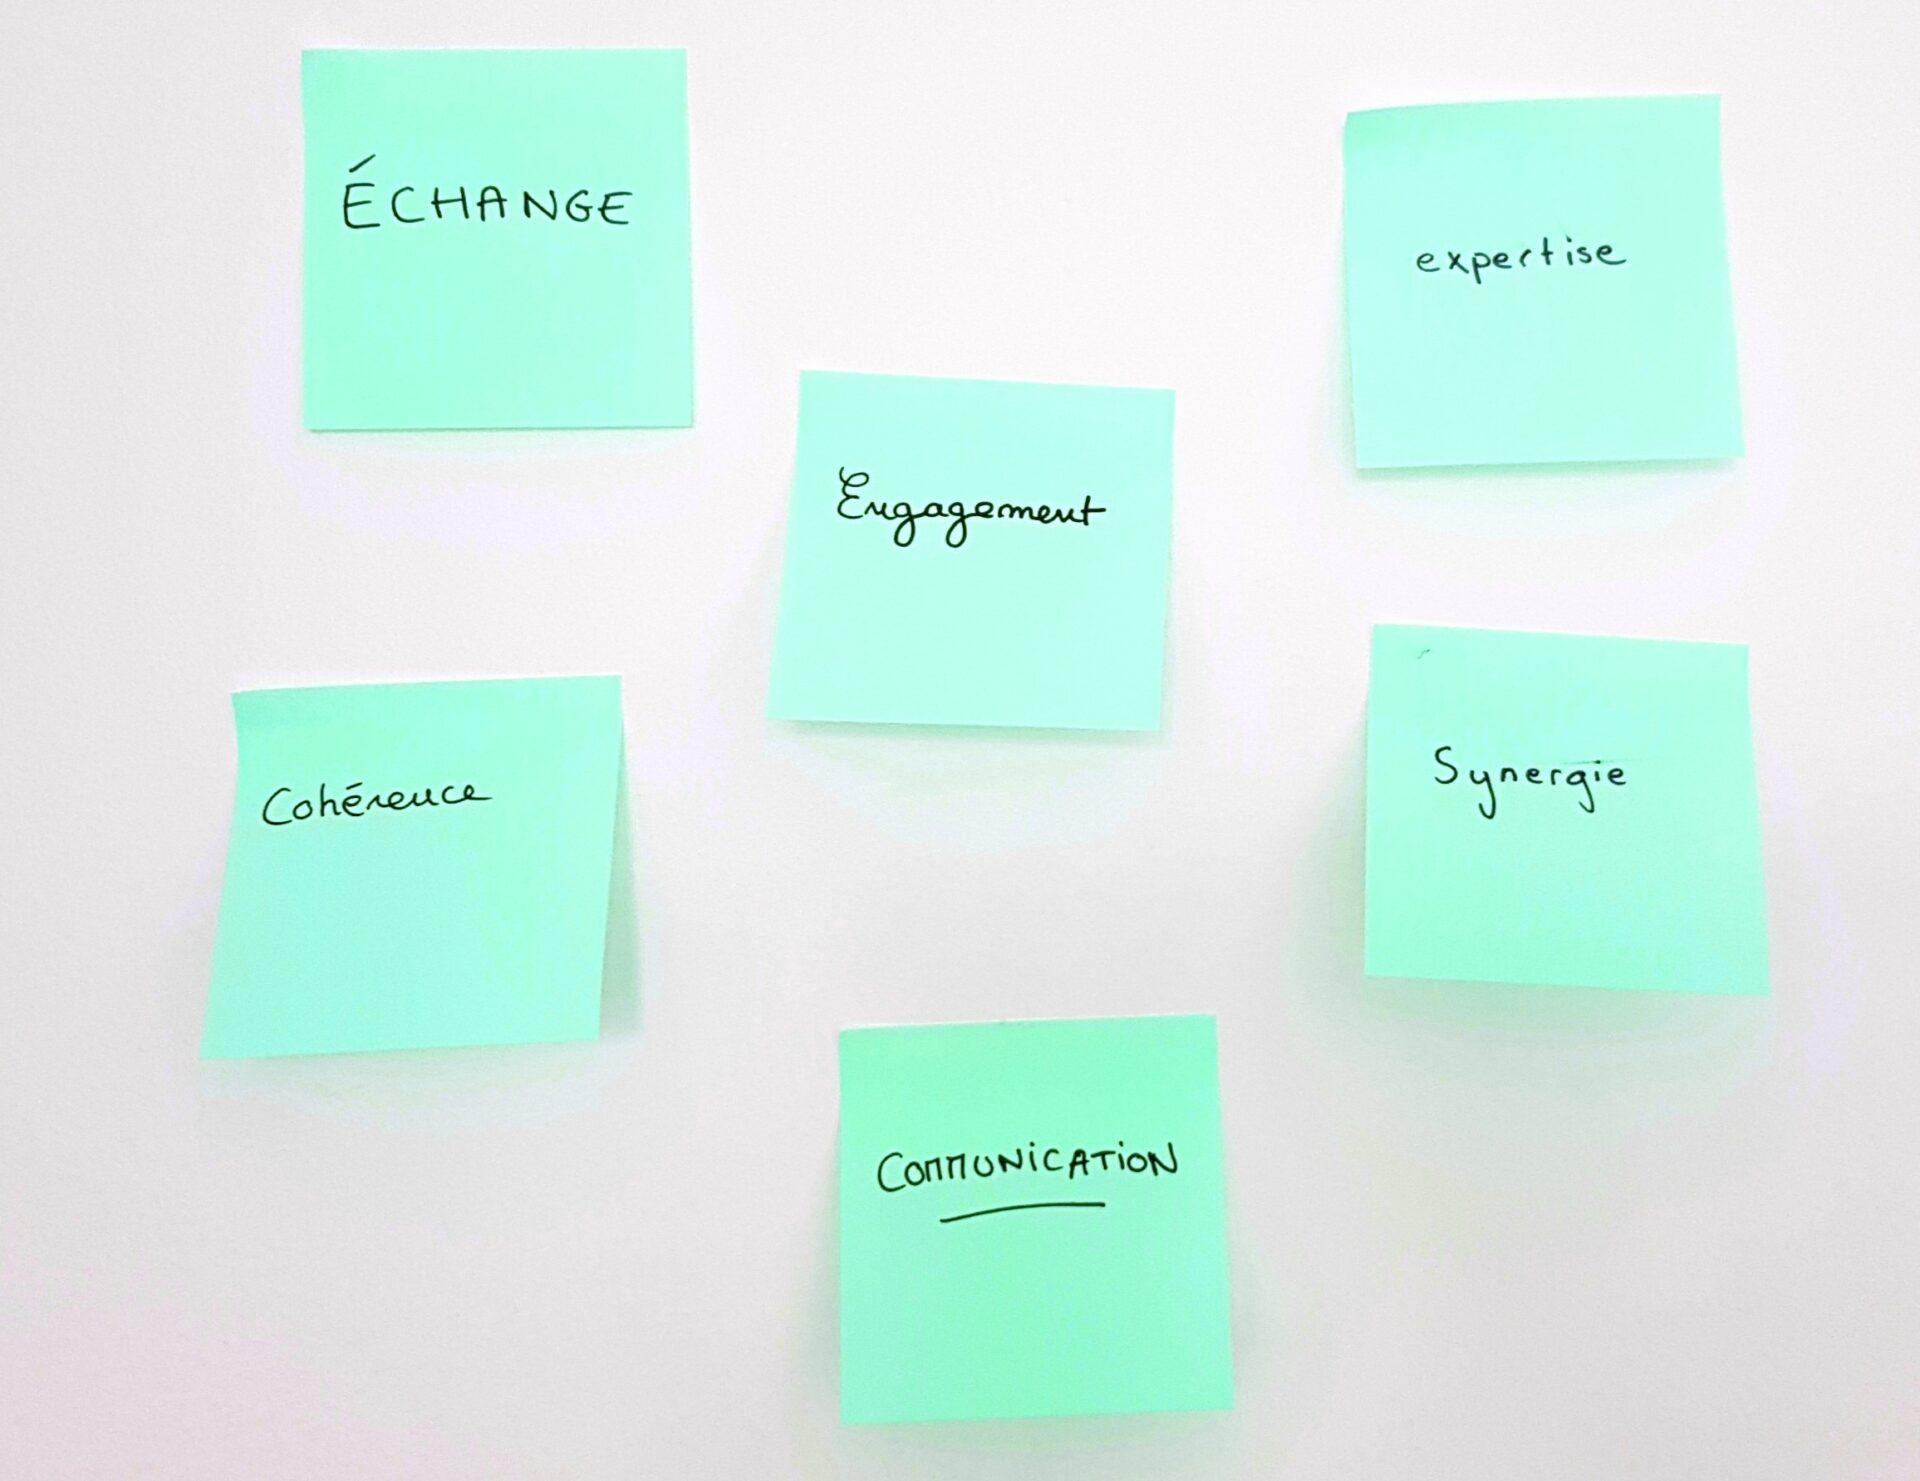 ÉCHANGE
expertise
Engagement
Cohérence
Synergie
COMMUNiCATiON